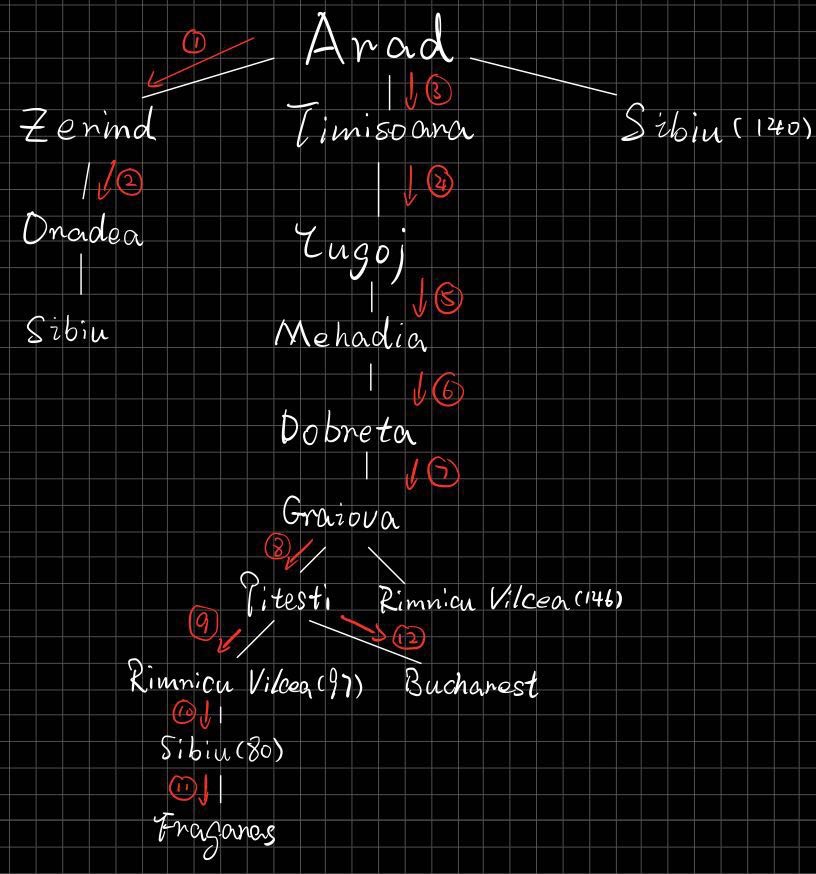 ① Arad
③
Zerind Timisoara Sibiu (140)
② ④
Oradea Lugoj
⑤
Sibiu Mehadia
⑥
Dobreta
⑦
Graiova
⑧
Pitesti Rimnicu Vilcea (146)
⑨ ⑫
Rimnicu Vilcea (97) Bucharest
⑩
Sibiu (80)
⑪
Fragaras